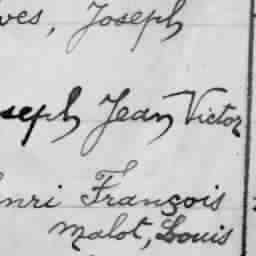 ves, Joseph
seph Jean Victor
nri François
Malot, Louis